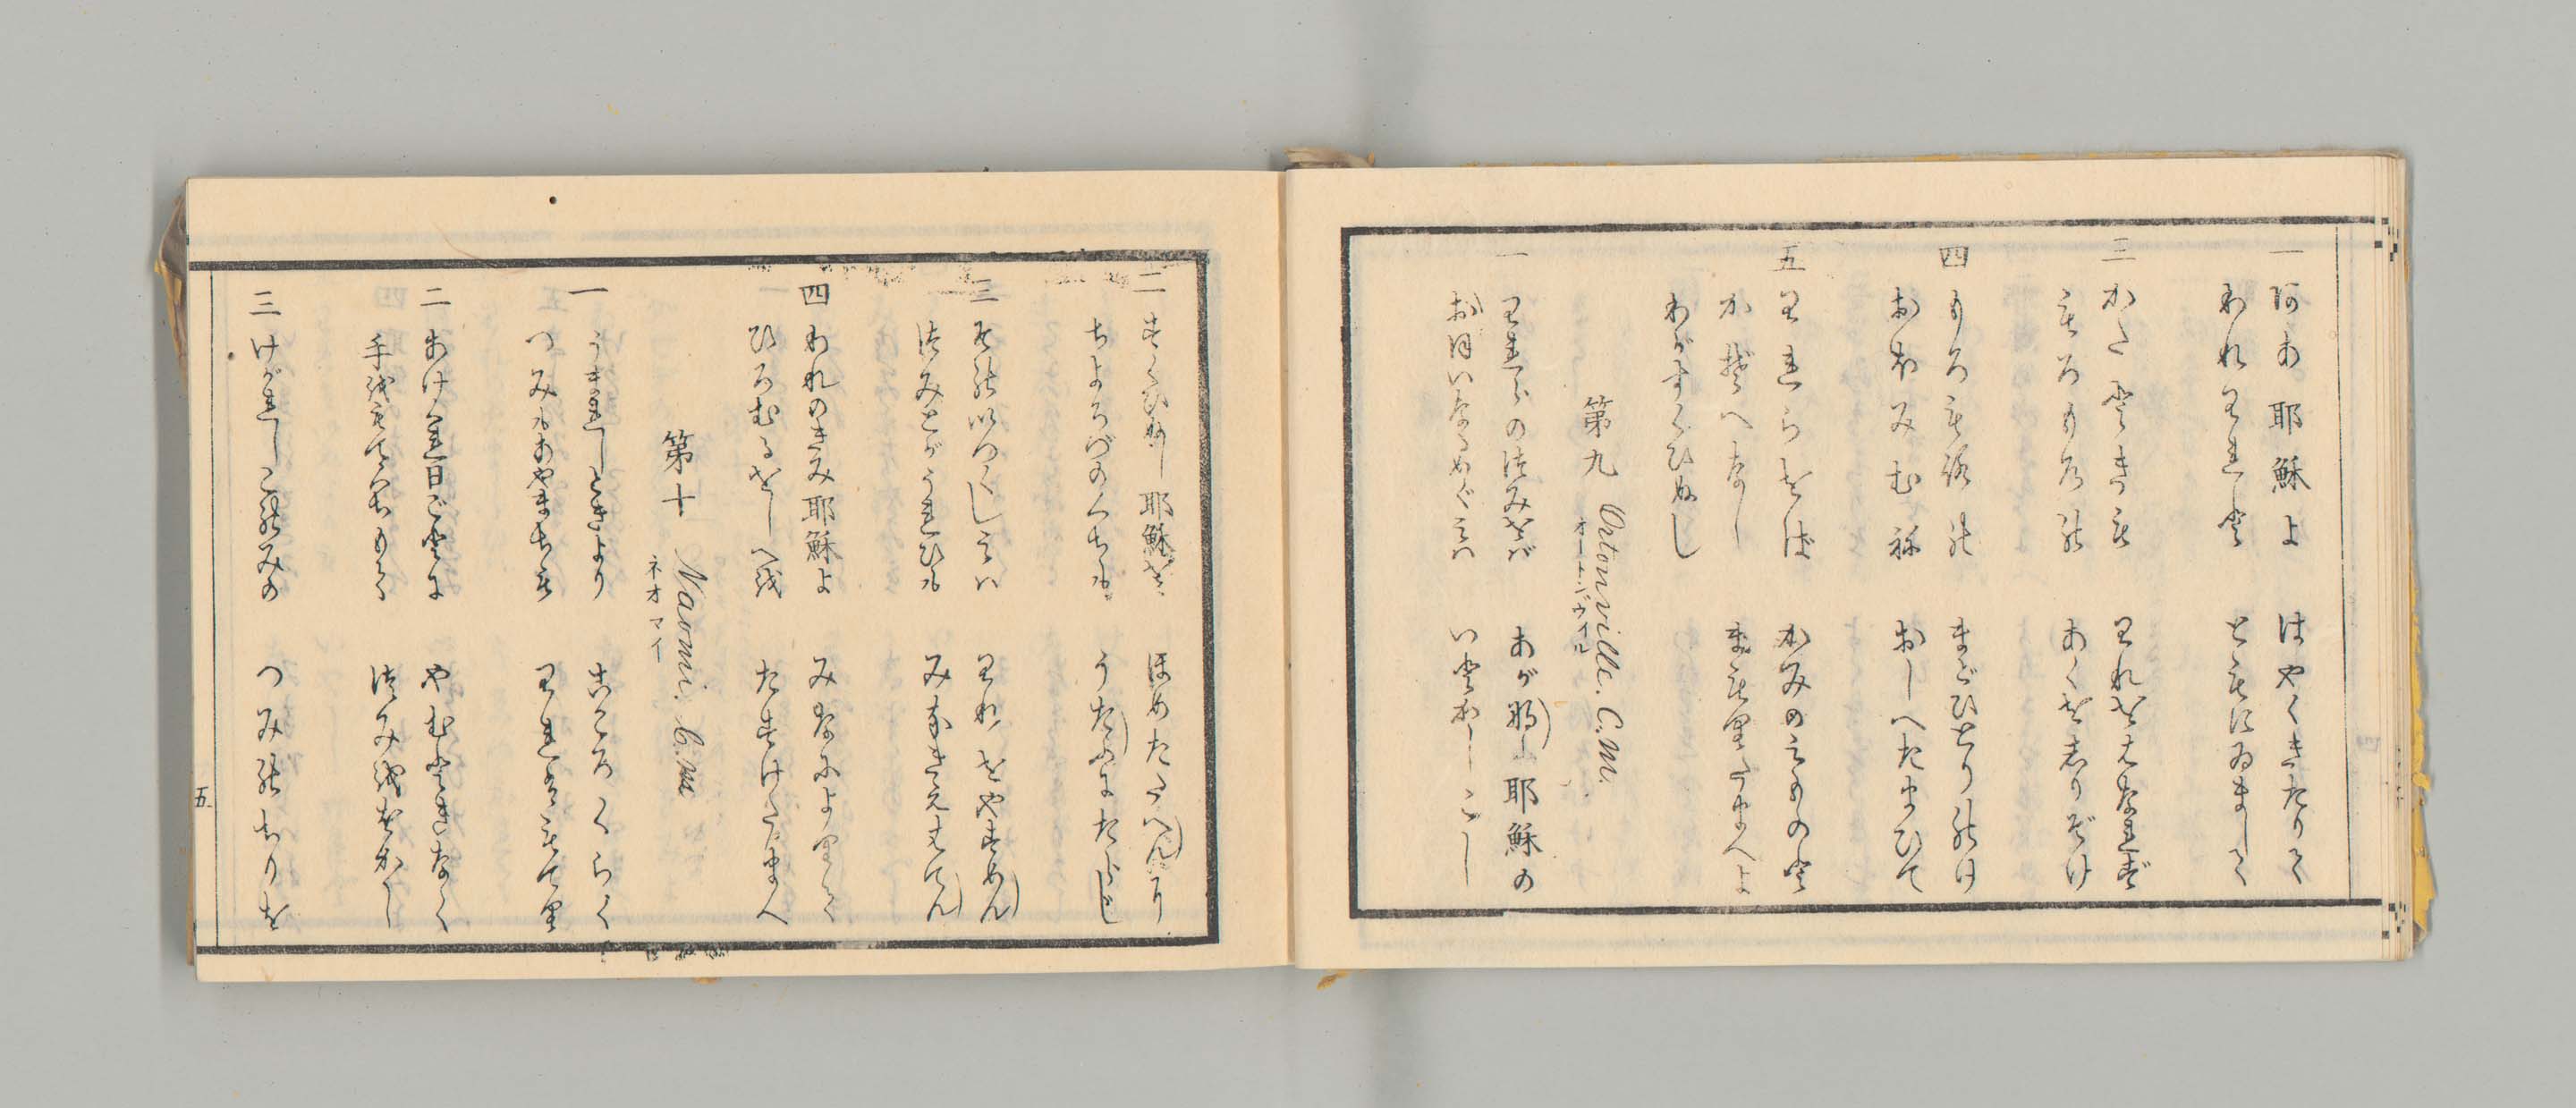 一 阿あ耶穌よ はやくきたりて
われられと ともにゐまして
三 かたときも われをはなれず
もろもろの あくをしりぞけ
四 もろもろの まどひとりのけ
おほみむね おしへたまひて
五 われらをば かみのみものと
かぞへなし まもりたまへよ
わがすくひぬし
第九 Ortonville. C.M.
オートンヴイル
一 われらのつみをば あがなひし耶穌の
おほいなるめぐみは いとかしこし
二 すくひぬし耶穌を ほめたたへんに
ちよろづのくちも うたふにたらじ
三 そのいつくしみは われをやすめん
つみとがうれひも みなきえはてん
四 われのきみ耶穌よ みなによりて
ひろむるをしへを たすけたまへ
第十 Naomi. C.M.
ネオマイ
一 うまれしときより こころくらく
つみもあやまちも われはもてり
二 あけくれ日ごとに やむときなく
手をもてくちもて つみををかし
三 けがれしこのみの つみのちりを
五